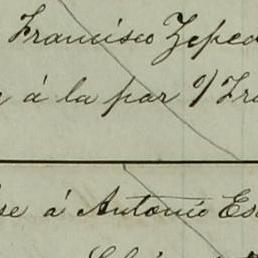 Francisco Zepe
á la par
se á Antonio Es